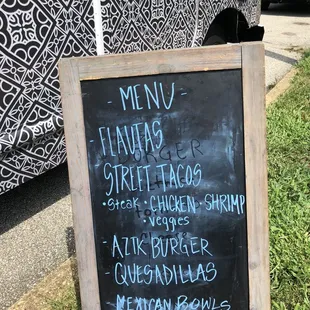 - MENU -
- FLAUTAS
STREET TACOS
• Steak • CHICKEN • SHRIMP
• veggies
- AZTK BURGER
- QUESADILLAS
- MEXICAN BOWLS